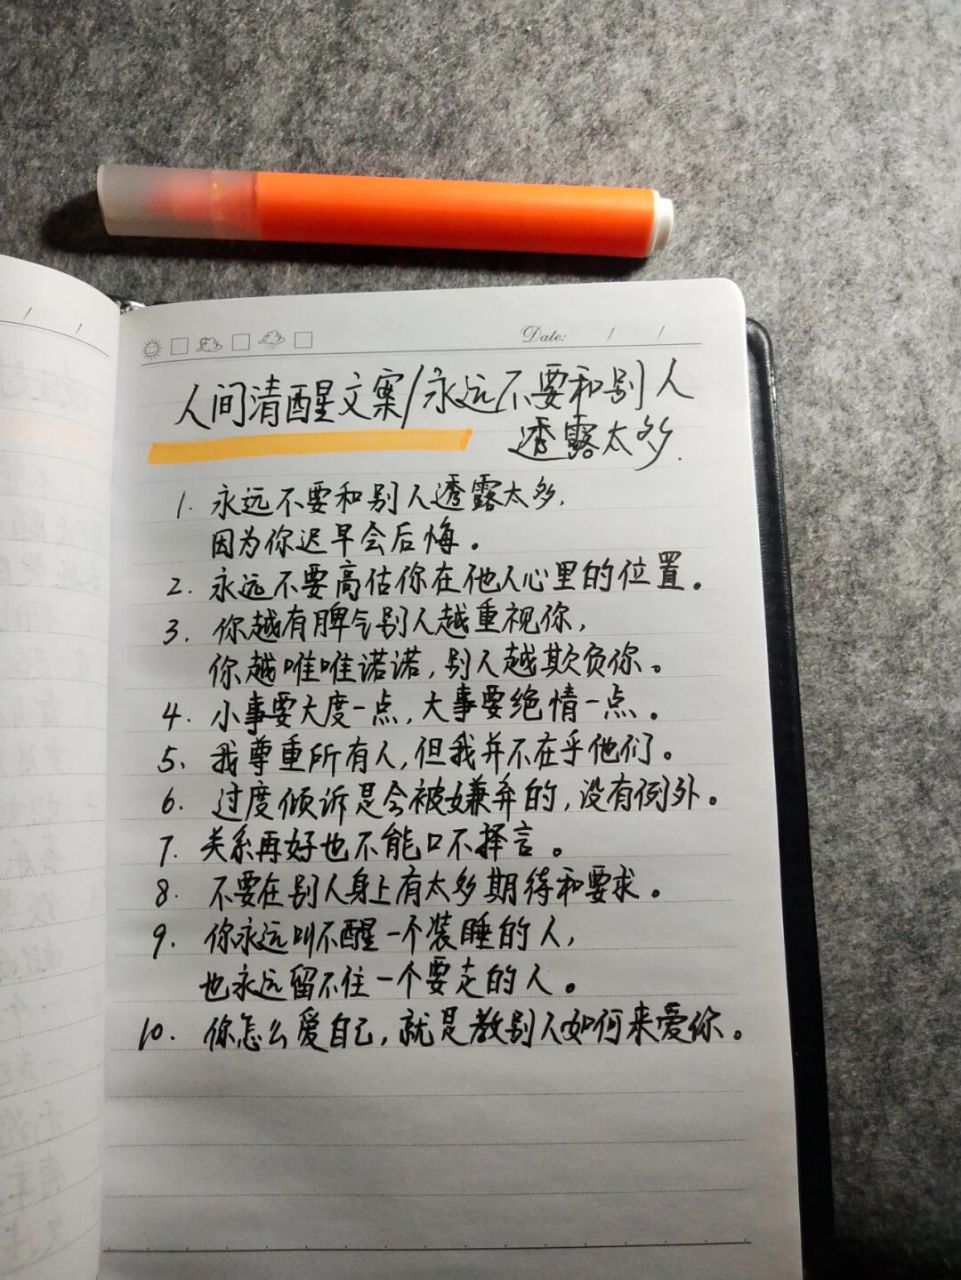 Date: / /
人间清醒文案/永远不要和别人
透露太多.
1. 永远不要和别人透露太多,
因为你迟早会后悔。
2. 永远不要高估你在他人心里的位置。
3. 你越有脾气别人越重视你,
你越唯唯诺诺,别人越欺负你。
4. 小事要大度一点,大事要绝情一点。
5、我尊重所有人,但我并不在乎他们。
6. 过度倾诉是会被嫌弃的,没有例外。
7. 关系再好也不能口不择言。
8. 不要在别人身上有太多期待和要求。
9. 你永远叫不醒一个装睡的人,
也永远留不住一个要走的人。
10. 你怎么爱自己,就是教别人如何来爱你。